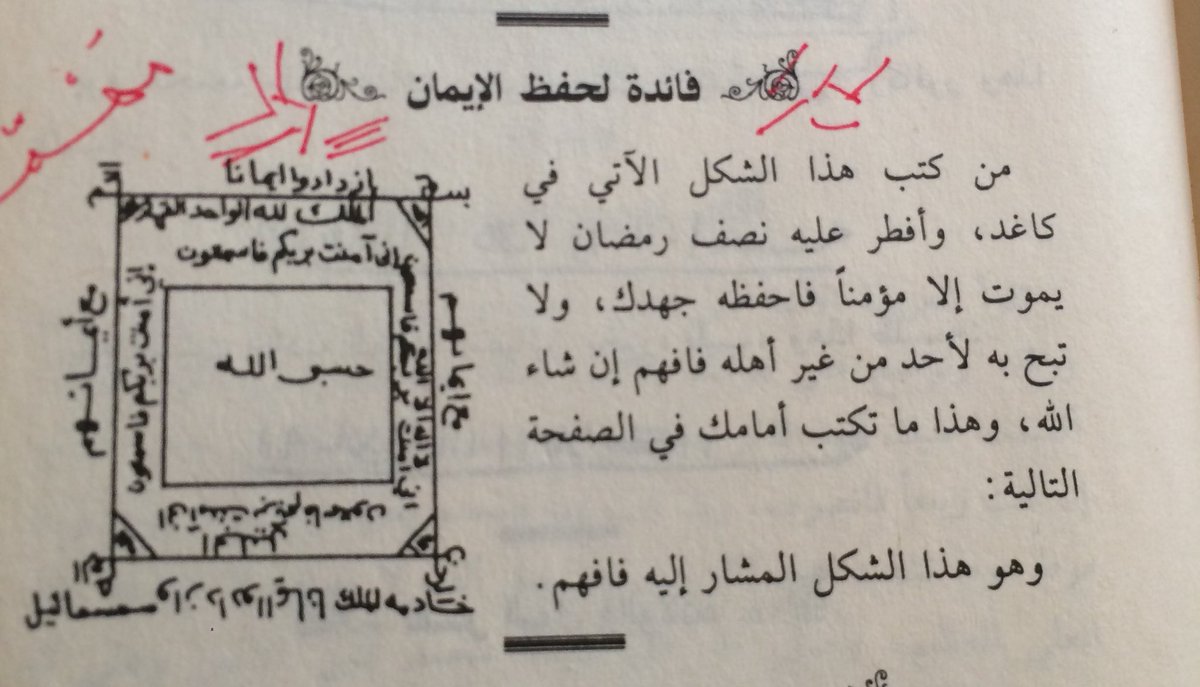 فائدة لحفظ الإيمان
من كتب هذا الشكل الآتي في
كاغد، وأفطر عليه نصف رمضان لا
يموت إلا مؤمناً فاحفظه جهدك، ولا
تبح به لأحد من غير أهله فافهم إن شاء
الله، وهذا ما تكتب أمامك في الصفحة
التالية:
وهو هذا الشكل المشار إليه فافهم.
ازدادوا ايمانا
الملك لله الواحد القهار
انى آمنت بربكم فاسمعون
إنى آمنت بربكم فاسمعون
مع أيمانهم
حسبى الله
مع ايمانهم